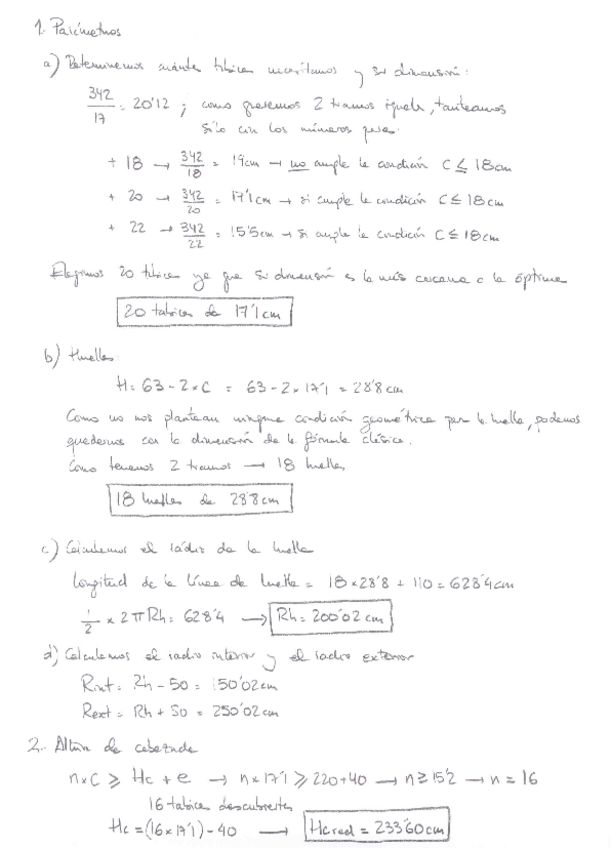 1. Parámetros
a) Determinemos cuántas tabicas necesitamos y su dimensión:
342/17 = 20'12 ; como queremos 2 tramos iguales, tanteamos
sólo con los números pares.
+ 18 → 342/18 = 19cm → no cumple la condición C ≤ 18cm
+ 20 → 342/20 = 17'1cm → si cumple la condición C ≤ 18cm
+ 22 → 342/22 = 15'5cm → si cumple la condición C ≤ 18cm
Elegimos 20 tabicas ya que su dimensión es la más cercana a la óptima
20 tabicas de 17'1cm
b) Huellas:
H = 63 - 2×C = 63 - 2×17'1 = 28'8cm
Como no nos plantean ninguna condición geométrica para la huella, podemos
quedarnos con la dimensión de la fórmula clásica.
Como tenemos 2 tramos → 18 huellas
18 huellas de 28'8cm
c) Calculemos el rádio de la huella
Longitud de la línea de huella = 18×28'8 + 110 = 628'4cm
1/2 × 2πRh = 628'4 → Rh = 200'02cm
d) Calculemos el radio interior y el radio exterior
Rint = Rh - 50 = 150'02cm
Rext = Rh + 50 = 250'02cm
2. Altura de cabezada
n×C ≥ Hc + e → n×17'1 ≥ 220+40 → n ≥ 15'2 → n = 16
16 tabicas descubiertas
Hc = (16×17'1) - 40 → Hc real = 233'60cm